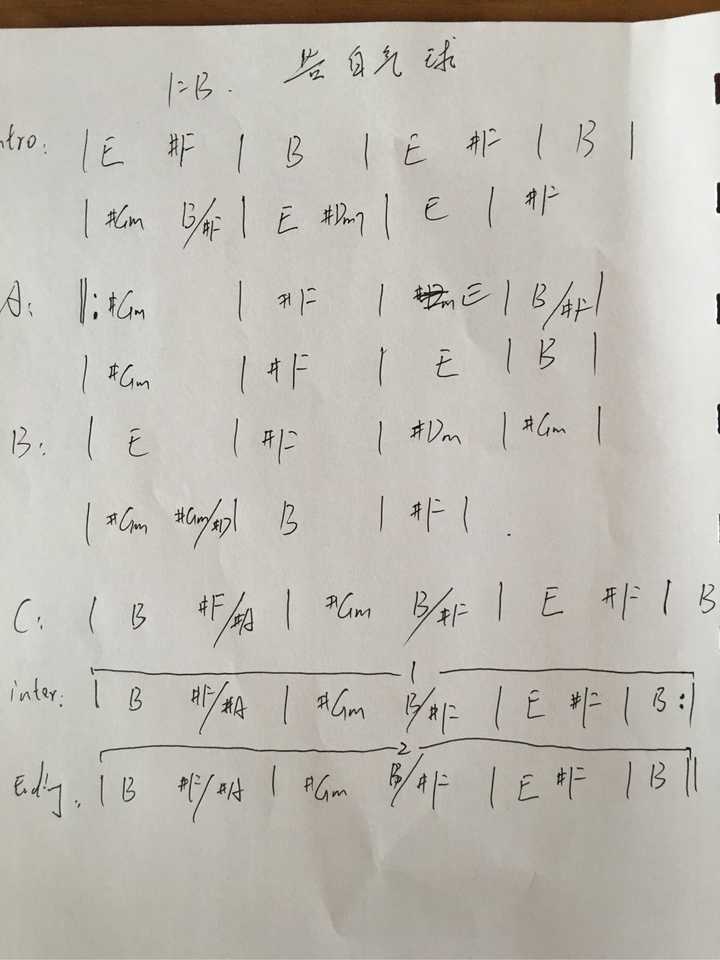 告白气球
1=B.
ntro: | E #F | B | E #F | B |
| #Gm B/#F | E #Dm7 | E | #F
A: ‖: #Gm | #F | E | B/#F |
| #Gm | #F | E | B |
B: | E | #F | #Dm | #Gm |
| #Gm #Gm/#D | B | #F | .
C: | B #F/#A | #Gm B/#F | E #F | B
1
inter: | B #F/#A | #Gm B/#F | E #F | B :|
2
Ending. | B #F/#A | #Gm B/#F | E #F | B ‖